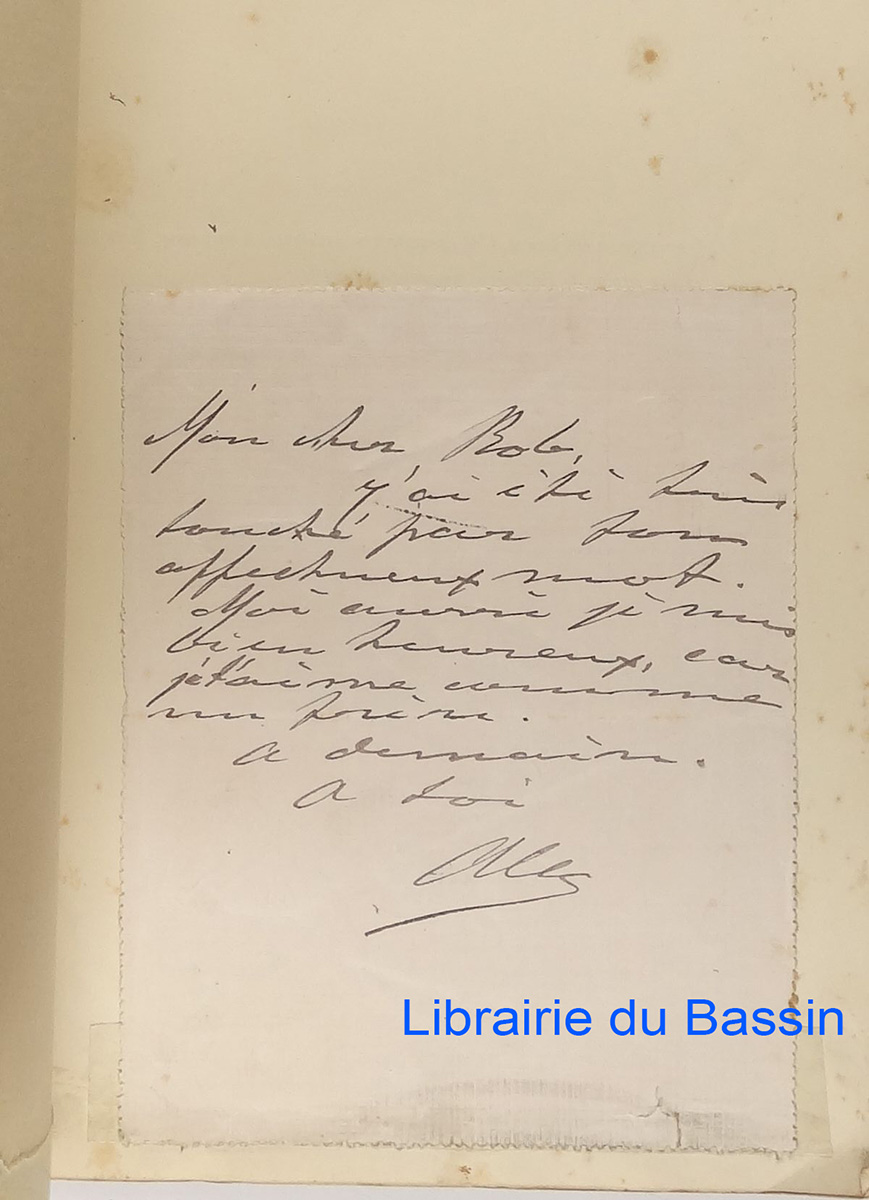 Mon cher Bob,
J'ai été très
touché par ton
affectueux mot.
Moi aussi je suis
bien heureux, car
je t'aime comme
un frère.
A demain.
A toi
Alex
Librairie du Bassin